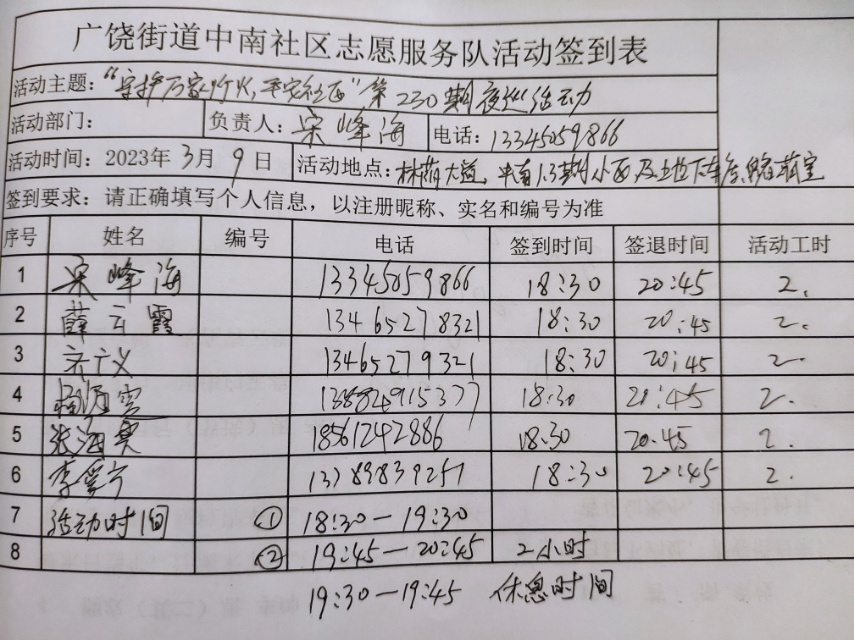 广饶街道中南社区志愿服务队活动签到表
活动主题：“守护万家灯火，平安社区”第230期夜巡活动
活动部门： 负责人：宋峰海 电话：13345059866
活动时间：2023年3月9日 活动地点：林荫大道、中南1.3期小区及地下车
签到要求：请正确填写个人信息，以注册昵称、实名和编号为准
序号 姓名 编号 电话 签到时间 签退时间 活动工时
1 宋峰海 13345059866 18:30 20:45 2.
2 薛云霞 13465278321 18:30 20:45 2.
3 13465279321 18:30 20:45 2.
4 18:30 20:45 2.
5 张海勇 18561242886 18:30 20:45 2.
6 李学宁 13789839251 18:30 20:45 2.
7 活动时间 ① 18:30—19:30
8 ② 19:45—20:45 2小时
19:30—19:45 休息时间